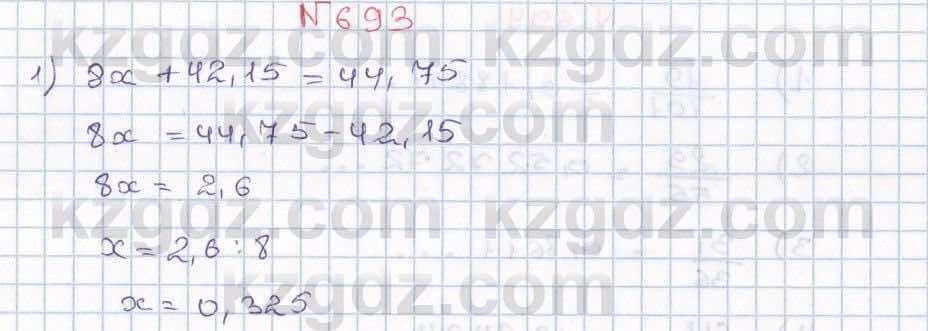 №693
1) 8x + 42,15 = 44,75
8x = 44,75 - 42,15
8x = 2,6
x = 2,6 : 8
x = 0,325
kzgdz.com kzgdz.com
kzgdz.com kzgdz.com
kzgdz.com kzgdz.com
kzgdz.com